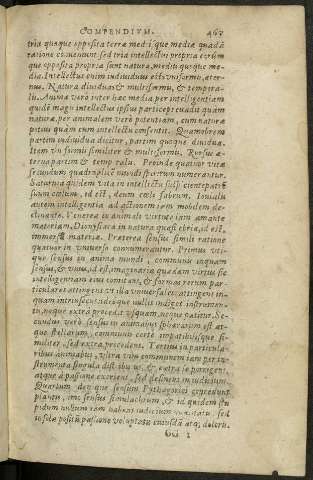 COMPENDIVM. 463
tria quoque opposita terræ medi que mediæ quadã
ratione conueniunt, sed tria intellectus propria eorum
que opposita propria sunt naturæ, mediũ quoque me-
dia. Intellectus enim indiuiduus est, vniformis, æter-
nus. Natura diuidua & multiformis, & tempora-
lis. Anima vero inter hæc media per intelligentiam
quidẽ magis intellectus ipsius particeps euadit quam
naturæ, per animalem vero potentiam, cum natura
potius quàm cum intellectu consentit. Quamobrem
partim indiuidua dicitur, partim quoque diuidua.
Item vniformis similiter & multiformis. Rursus æ-
terna partim & temporalis. Proinde quatuor vitæ
secundum quadruplicem mundi spiritum numerantur.
Saturnia quidem vita in intellectu suspicientẽ patrẽ
suum cœlum, id est, deum cœli fabrum. Iouialis
autem intelligentia ad actionem rerum mobilem de-
clinante. Venerea in animali virtute iam amante
materiam. Dionysiaca in natura quasi ebria, id est,
immersa materiæ. Præterea sensus simili ratione
quatuor in vniuerso connumerantur. Primus vti-
que sensus in anima mundi, communis inquam
sensus, & vnus, id est, imaginaria quædam virtus sic
intelligentiam eius comitans, & formas rerum par-
ticulares attingens vt illa vniuersales attingens in-
quam intrinsecus, ideoque nullis indiget instrumen-
tis, neque extra procedit vsquam, neque patitur. Se-
cundus vero sensus in animabus sphærarum est at-
que stellarum, communis certe impatibilisque si-
militer, sed extra procedens. Tertius in particula-
ribus animabus, vltra vim communem iam per in-
strumenta singula distributus, & extra se pergens,
atque à passione exoriens, sed desinens in iudicium.
Quartum denique sensum Pythagorici concedunt
plantis, imò sensus simulachrum, & id quidem stu-
pidum nullum iam habens iudicium veritatis, sed
in sola positum passione voluptatis cuiusdã atq; doloris.
GG 1